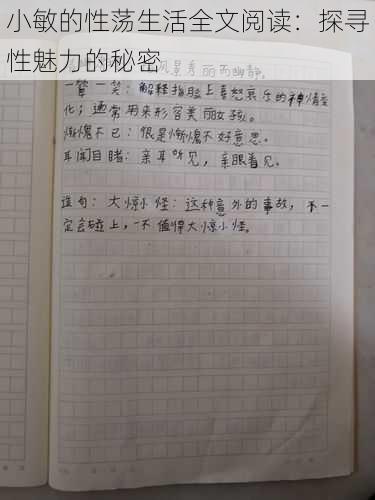 小敏的性荡生活全文阅读：探寻
性魅力的秘密
风景秀丽而幽静。
一颦一笑：解释指脸上喜怒哀乐的神情变
化；通常用来形容美丽女孩。
惭愧不已：很是惭愧不好意思。
耳闻目睹：亲耳听见，亲眼看见。
造句：大惊小怪：这种意外的事故，不一
定会碰上，不值得大惊小怪。